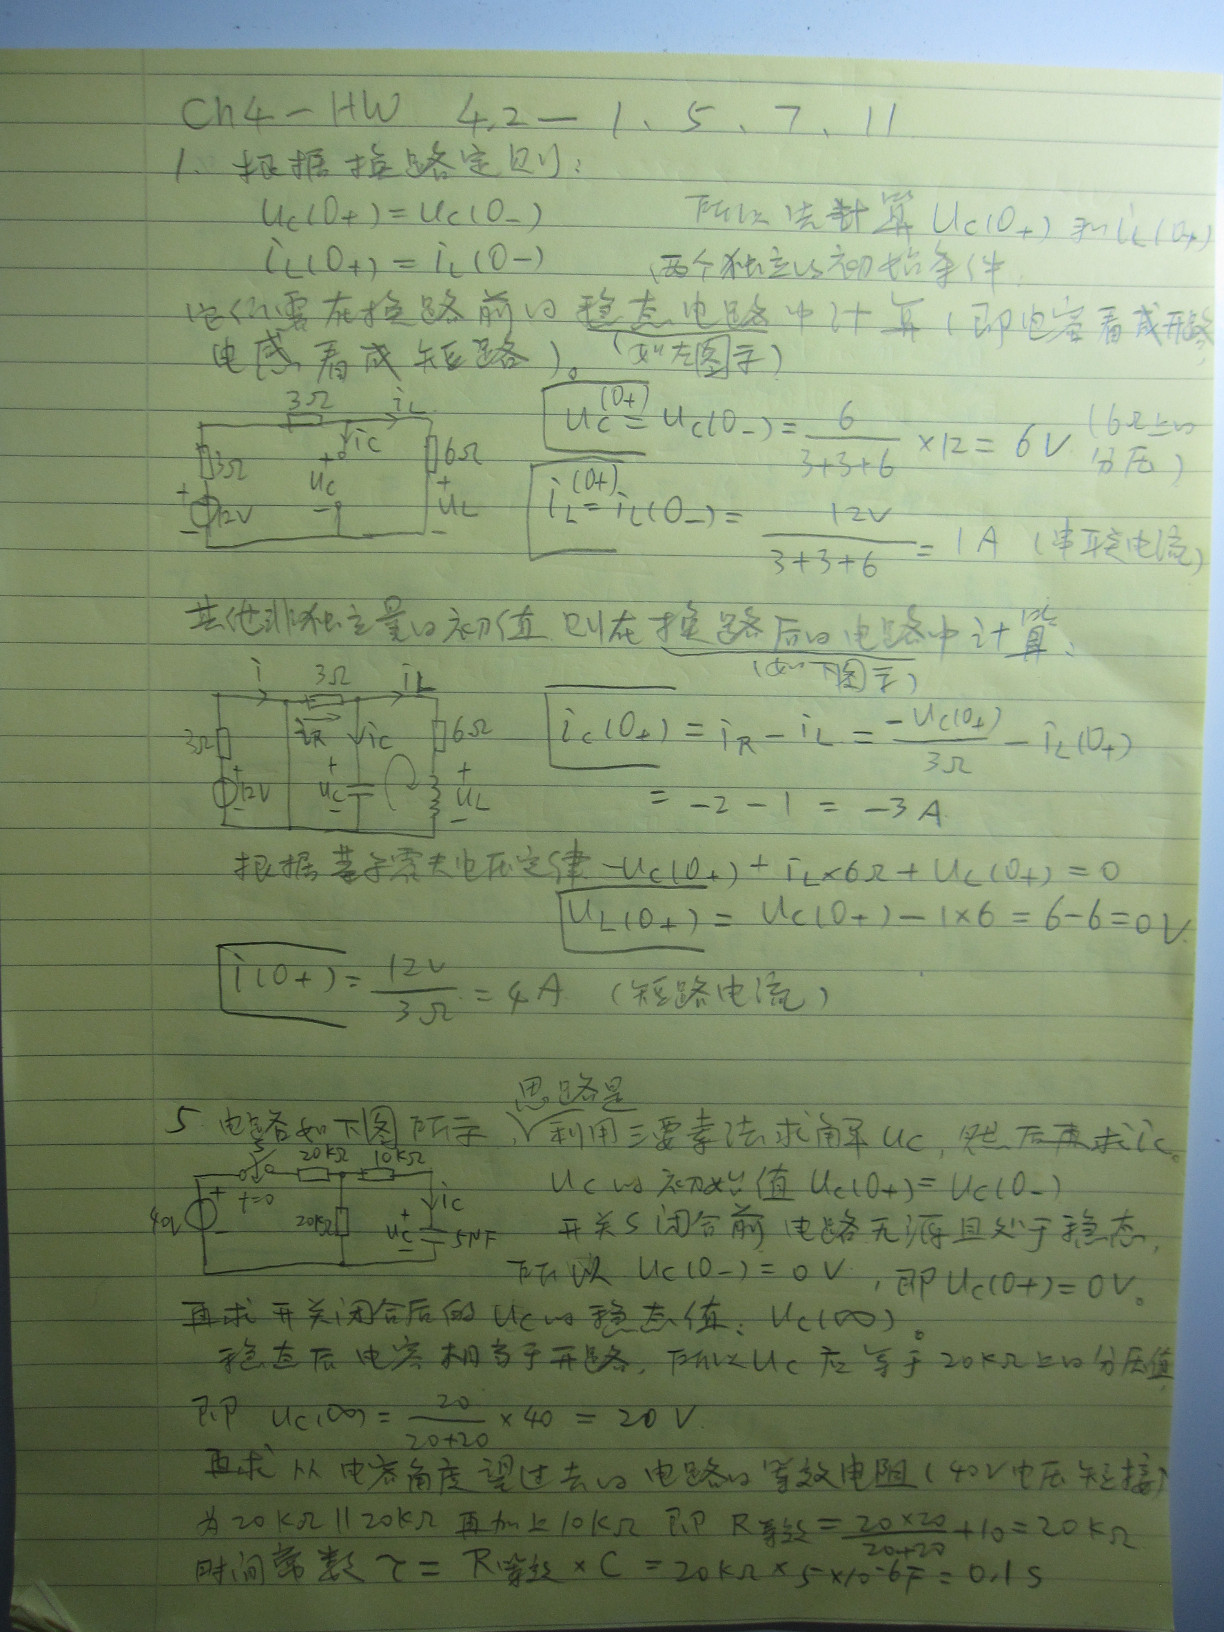 Ch4-HW 4.2-1、5、7、11
1、根据换路定则:
uc(0+)=uc(0-) 所以先计算uc(0+)和iL(0+)
iL(0+)=iL(0-) 两个独立的初始条件.
它们需在换路前的稳态电路中计算(即电容看成开路
电感看成短路)。(如左图示)
3Ω iL
3Ω iC 6Ω
+ uc - + uL -
+ 12V -
uc(0+)=uc(0-)=6/(3+3+6)×12=6V (6Ω上的分压)
iL(0+)=iL(0-)=12V/(3+3+6)=1A (串联电流)
其他非独立量的初值则在换路后的电路中计算、
(如下图示)
i 3Ω iL
3Ω iR iC 6Ω
+ 12V - + uc - + uL -
ic(0+)=iR-iL=-uc(0+)/3Ω-iL(0+)
=-2-1=-3A
根据基尔霍夫电压定律-uc(0+)+iL×6Ω+uL(0+)=0
uL(0+)=uc(0+)-1×6=6-6=0V.
i(0+)=12V/3Ω=4A (短路电流)
思路是
5 电路如下图所示,利用三要素法求解uc,然后再求ic。
S 20kΩ 10kΩ
t=0 iC
40V + - 20kΩ + uc - 5μF
uc的初始值uc(0+)=uc(0-)
开关S闭合前电路无源且处于稳态,
所以 uc(0-)=0V,即uc(0+)=0V。
再求开关闭合后的uc的稳态值:uc(∞)。
稳态后电容相当于开路,所以uc应等于20kΩ上的分压值
即 uc(∞)=20/(20+20)×40=20V.
再求从电容角度望过去的电路的等效电阻(40V电压短接)
为20kΩ||20kΩ再加上10kΩ 即 R等效=20×20/(20+20)+10=20kΩ
时间常数 τ=R等效×C=20kΩ×5×10-6F=0.1s